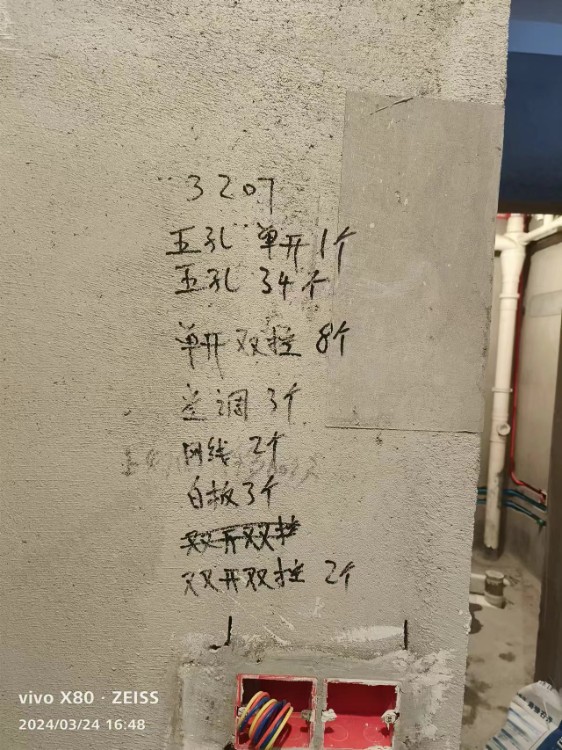 3207
五孔 单开 1个
五孔 34个
单开双控 8个
空调 3个
网线 2个
白板 3个
双开双控
双开双控 2个
vivo X80 · ZEISS
2024/03/24 16:48